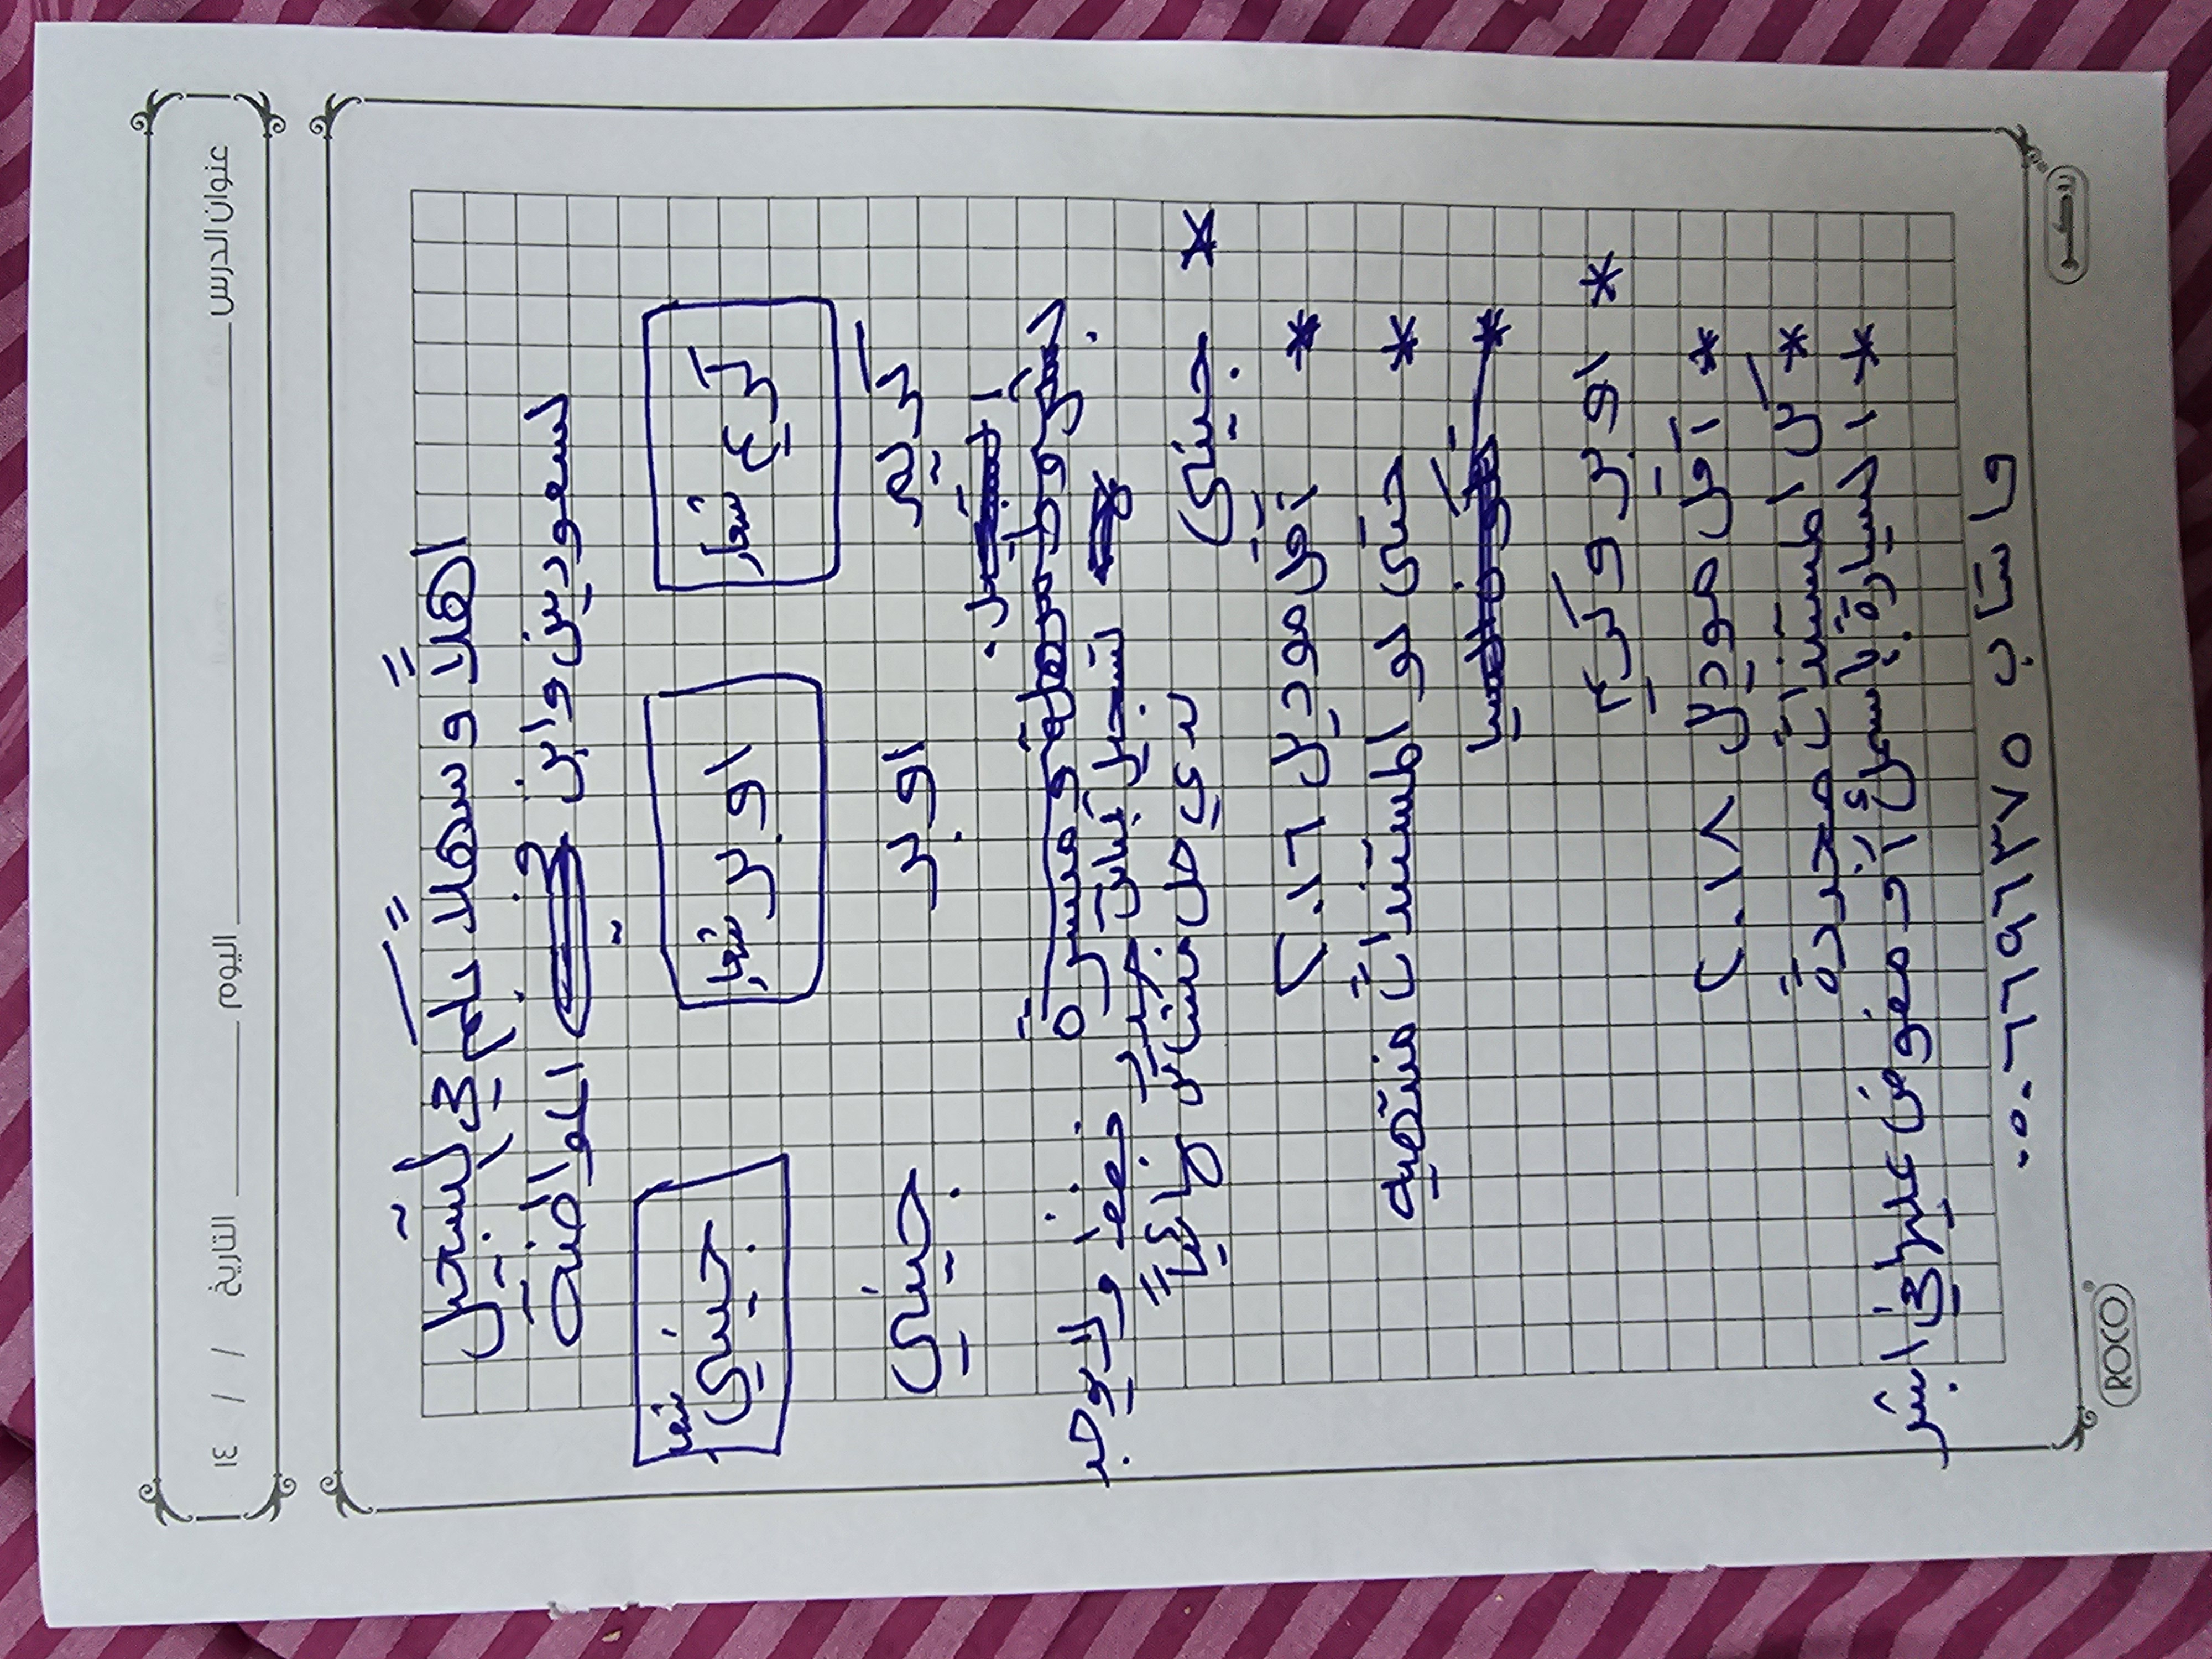 عنوان الدرس اليوم التاريخ / / ١٤
اهلاً وسهلاً بكم في لتسجيل
لسعوديين وابن المواطنة
كريم شعار اوبر شعار جيني شعا
كريم اوبر جيني
بشروط سهلة و ميسرة
تسجيل كباتن جدد فقط ولا يوجد
لدي حل مشاكل نهائياً
* جيني
* أقل موديل ٢٠١٦
* حتى لو المستندات منتهيه
* تكون السيا
* اوبر وكريم
* أقل موديل ٢٠١٨
* كل المستندات مجددة
* السيارة بأسمك أو مفوض عليها في ابشر
واتساب ٠٥٠٦٦٩٦٣٧٥
روكو
ROCO